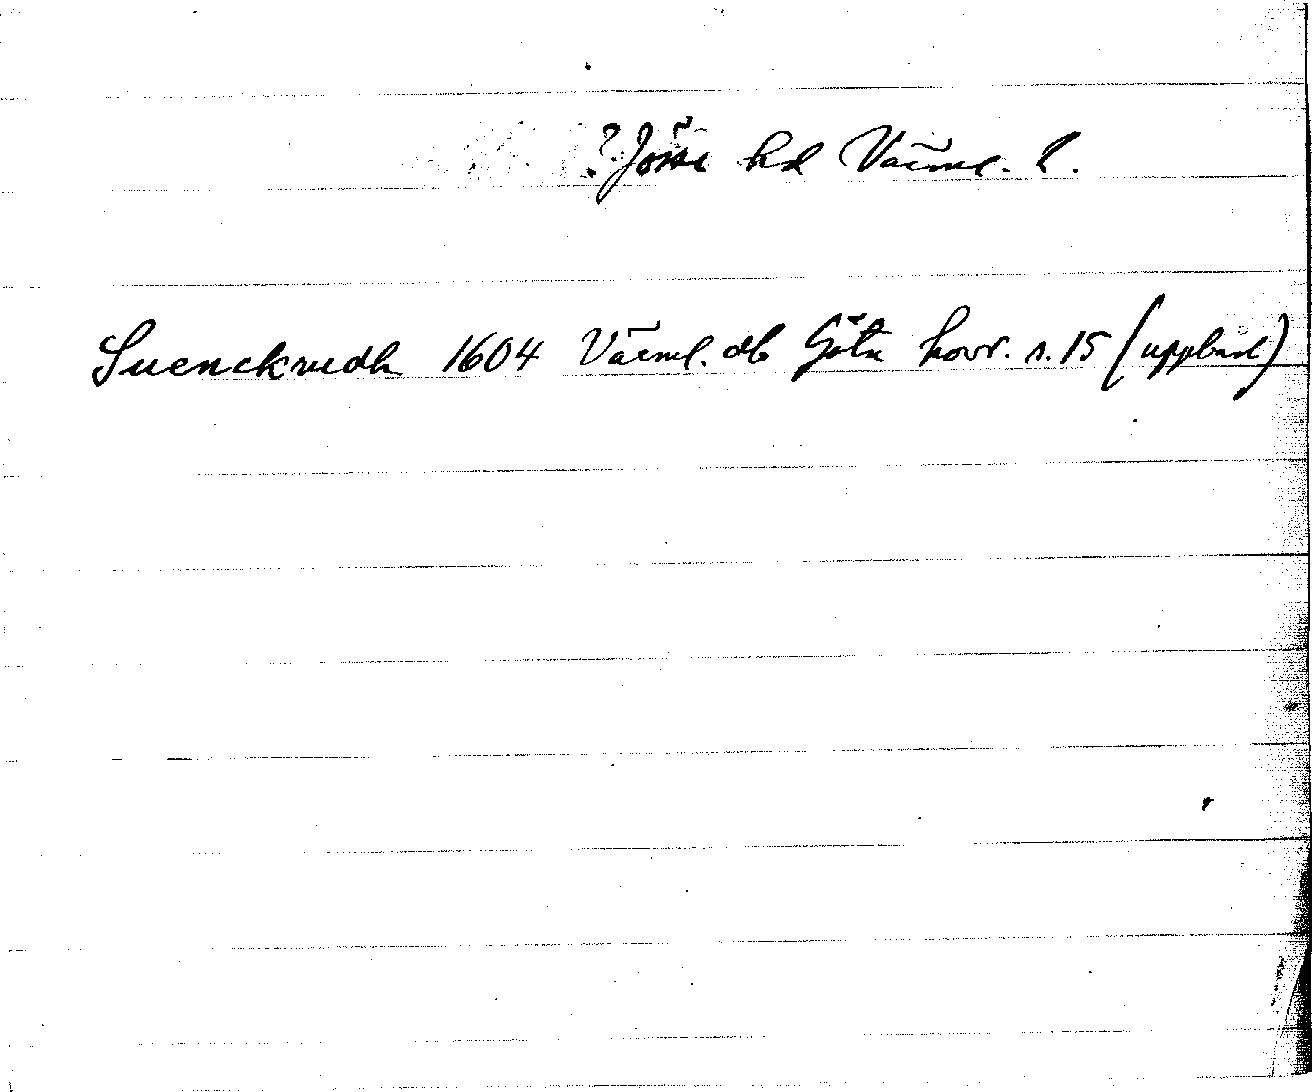 ? Jösse hd Värml. l.
Suenckrudh 1604 Värml. db Göta hovr. s. 15 (uppbörd)